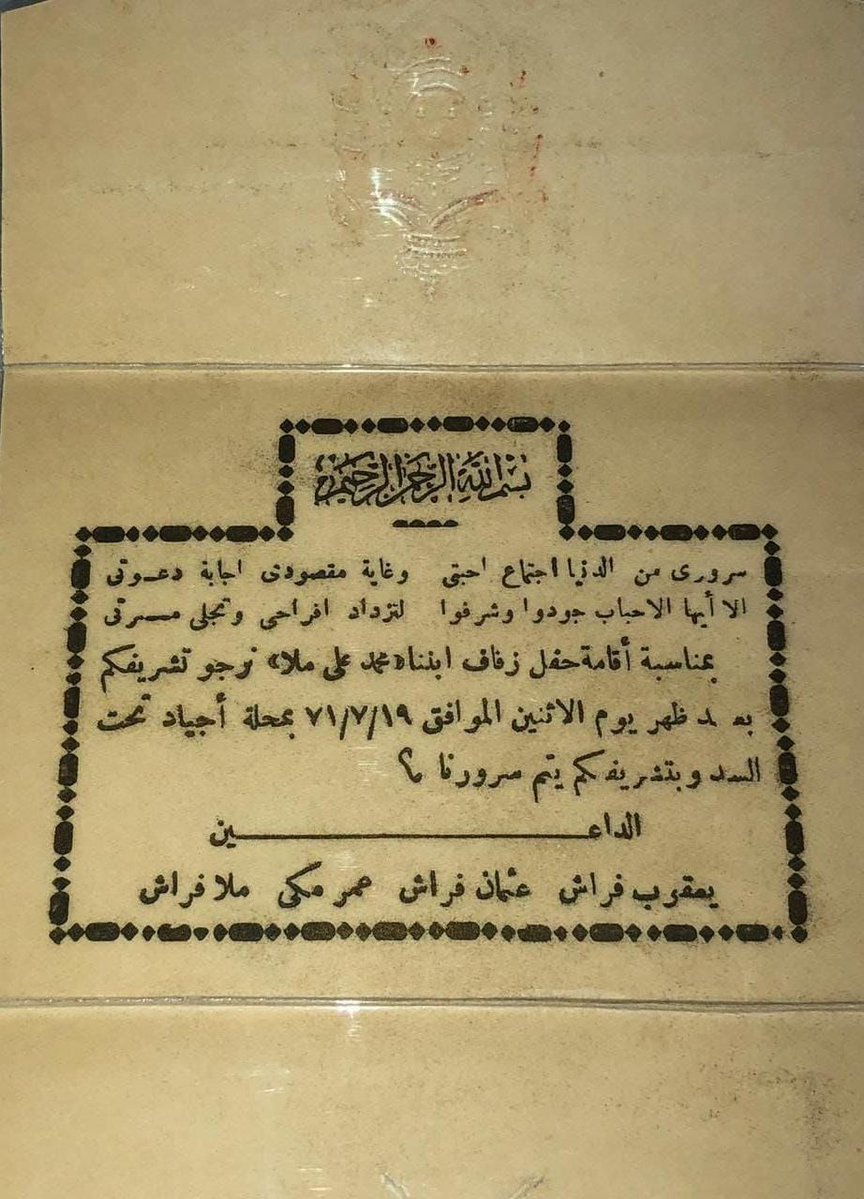 بسم الله الرحمن الرحيم
سرورى من الدنيا اجتماع احبتى وغاية مقصودى اجابة دعوتى
الا أيها الاحباب جودوا وشرفوا لتزداد افراحى وتجلى مسرتى
بمناسبة أقامة حفل زفاف ابننا «محمد على ملا» نرجو تشريفكم
بعد ظهر يوم الاثنين الموافق ٧١/٧/١٩ بمحلة أجياد تحت
السد وبتشريفكم يتم سرورنا ؟
الداعــــــــــــين
يعقوب فراش عثمان فراش عمر مكى ملا فراش